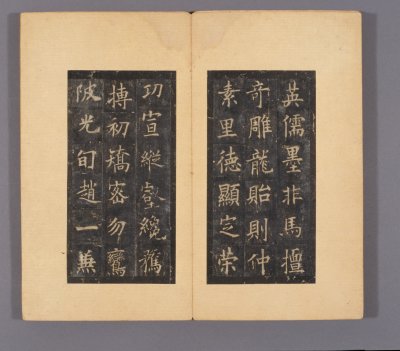 英儒墨非馬擅
奇雕龍貽則仲
素里德顯㝎荣
功宣縱壑纔
搏初矯密勿鸞
陂光旬趙一兼